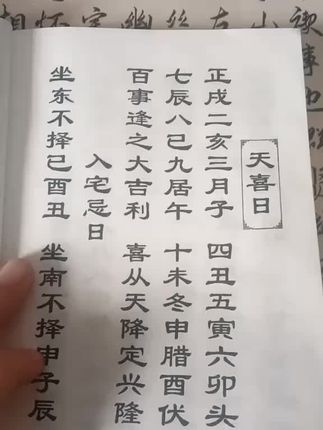 天喜日
正戌二亥三月子 四丑五寅六卯头
七辰八已九居午 十未冬申腊酉伏
百事逢之大吉利 喜从天降定兴隆
入宅忌日
坐东不择已酉丑 坐南不择申子辰